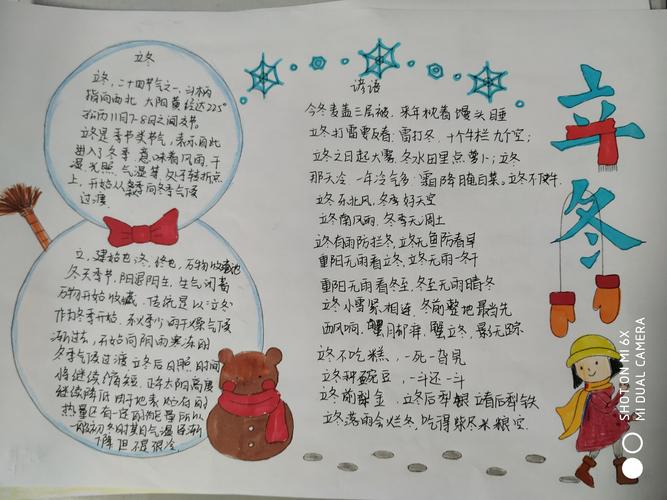 立冬
立冬,二十四节气之一,斗柄
指向西北 太阳黄经达225°
于公历11月7-8日之间交节。
立冬是季节类节气,表示自此
进入了冬季.意味着风雨、干
湿、光照、气温等,处于转折点
上,开始从秋季向冬季气候
过渡.
立,建始也;冬,终也,万物收藏也
冬天季节,阳退阴生,生气闭蓄
万物开始收藏.传统是以"立冬"
作为冬季开始.秋季少雨干燥气候
渐过去,开始向阴雨寒冻的
冬季气候过渡.立冬后日照时间
将继续缩短,正午太阳高度
继续降低.由于地表
热量还有一定的能量所以
一般初冬时期气温还渐
下降但不很冷.
谚语
今冬麦盖三层被,来年枕着馒头睡
立冬打雷要反春;雷打冬,十个牛栏九个空;
立冬之日起大雾,冬水田里点萝卜;立冬
那天冷,一年冷气多;霜降腌白菜。立冬不使牛.
立冬东北风,冬季好天空
立冬南风雨,冬季无凋土
立冬有雨防烂冬,立冬无鱼防春旱
重阳无雨看立冬,立冬无雨一冬干
重阳无雨看冬至,冬至无雨晴冬
立冬小雪紧相连,冬前整地最当先
西风响,蟹脚痒,蟹立冬,影无踪
立冬不吃糕,一死一旮旯
立冬种豌豆,一斗还一斗
立冬前犁金,立冬后犁银,立春后犁铁
立冬落雨会烂冬,吃得柴尽米粮空.
立
冬
SHOT ON MI 6X
MI DUAL CAMERA